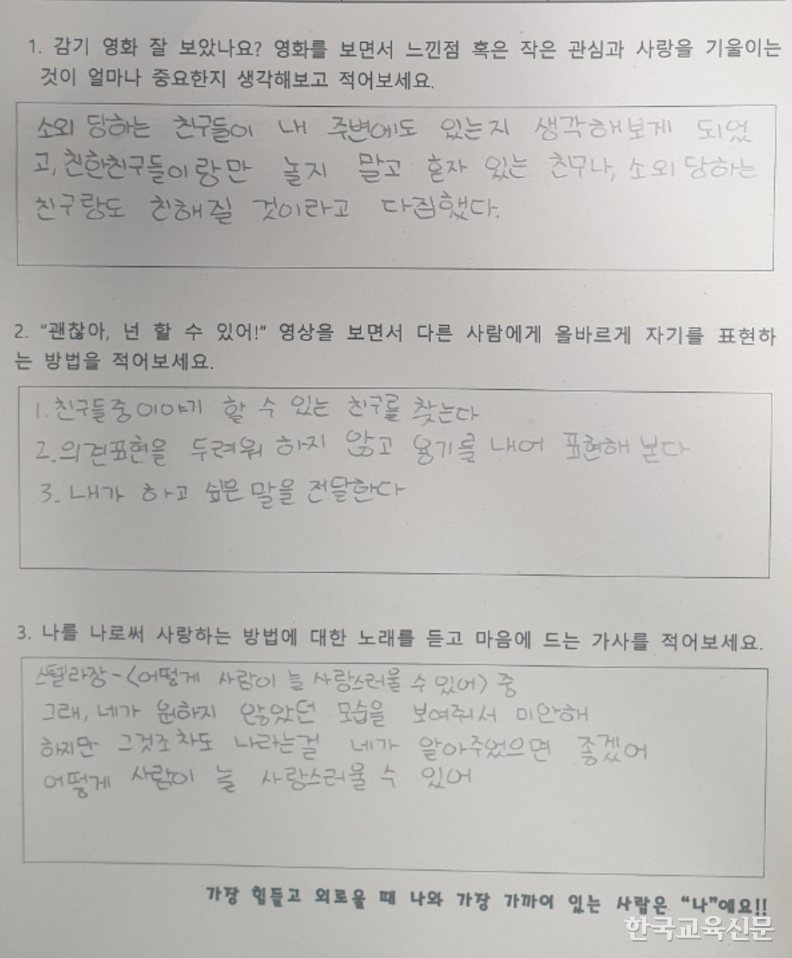 1. 감기 영화 잘 보았나요? 영화를 보면서 느낀점 혹은 작은 관심과 사랑을 기울이는
것이 얼마나 중요한지 생각해보고 적어보세요.
소외 당하는 친구들이 내 주변에도 있는지 생각해보게 되었
고, 친한친구들이랑만 놀지 말고 혼자 있는 친구나, 소외 당하는
친구랑도 친해질 것이라고 다짐했다.
2. "괜찮아, 넌 할 수 있어!" 영상을 보면서 다른 사람에게 올바르게 자기를 표현하
는 방법을 적어보세요.
1. 친구들중이야기 할 수 있는 친구를 찾는다
2. 의견표현을 두려워 하지 않고 용기를 내어 표현해 본다
3. 내가 하고 싶은 말을 전달한다
3. 나를 나로써 사랑하는 방법에 대한 노래를 듣고 마음에 드는 가사를 적어보세요.
스텔라장-<어떻게 사람이 늘 사랑스러울 수 있어> 중
그래, 네가 원하지 않았던 모습을 보여줘서 미안해
하지만 그것조차도 나라는걸 네가 알아주었으면 좋겠어
어떻게 사람이 늘 사랑스러울 수 있어
가장 힘들고 외로울 때 나와 가장 가까이 있는 사람은 "나"예요!!
한국교육신문